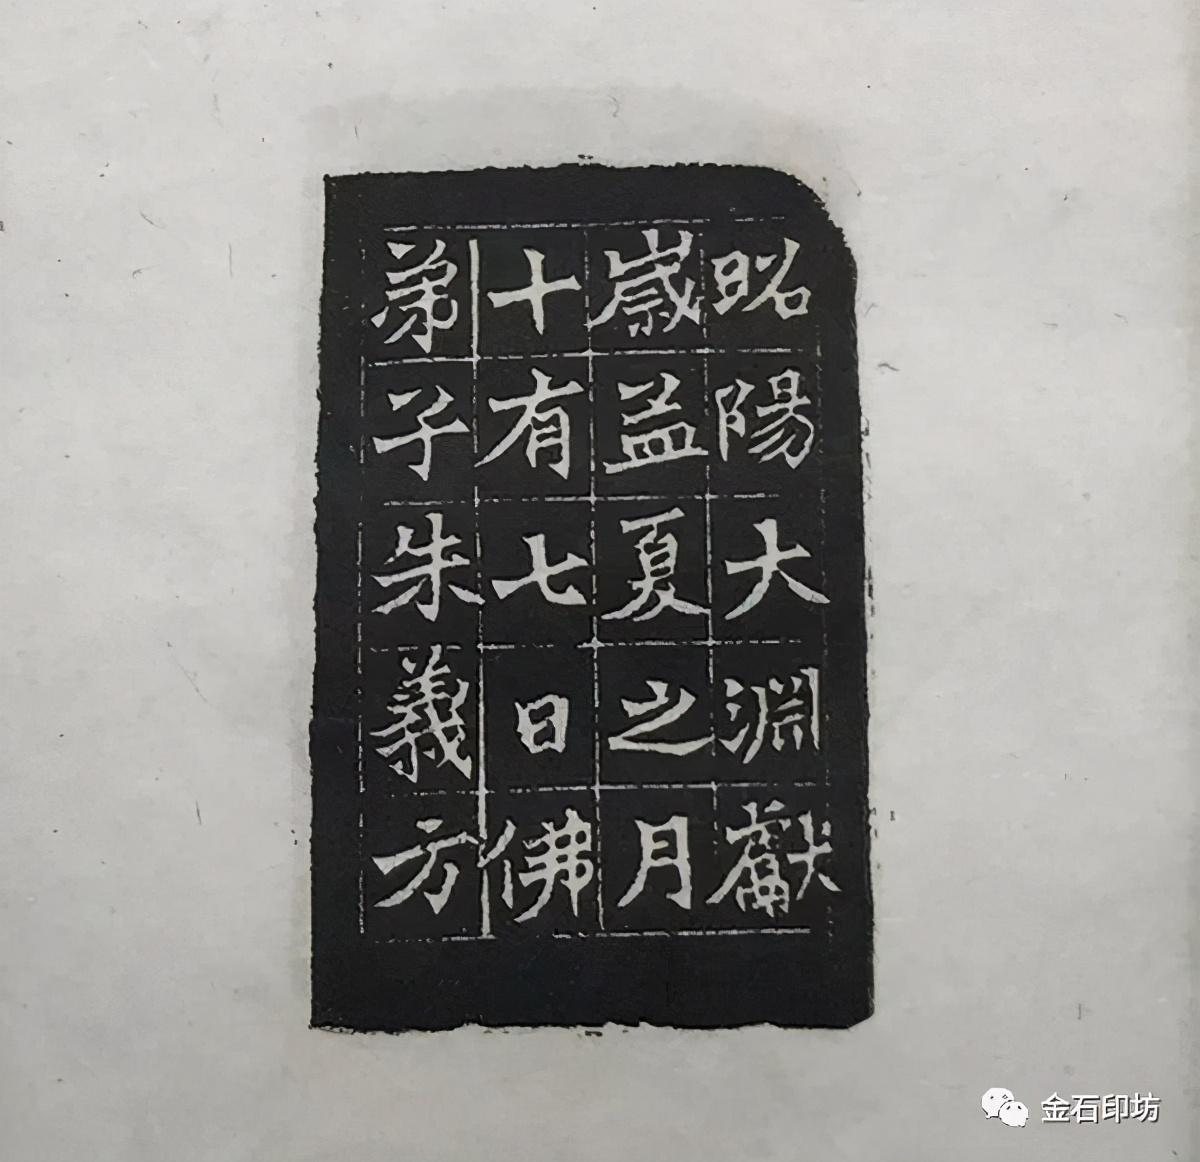 昭陽大淵獻
歲益夏之月
十有七日佛
弟子朱義方
金石印坊